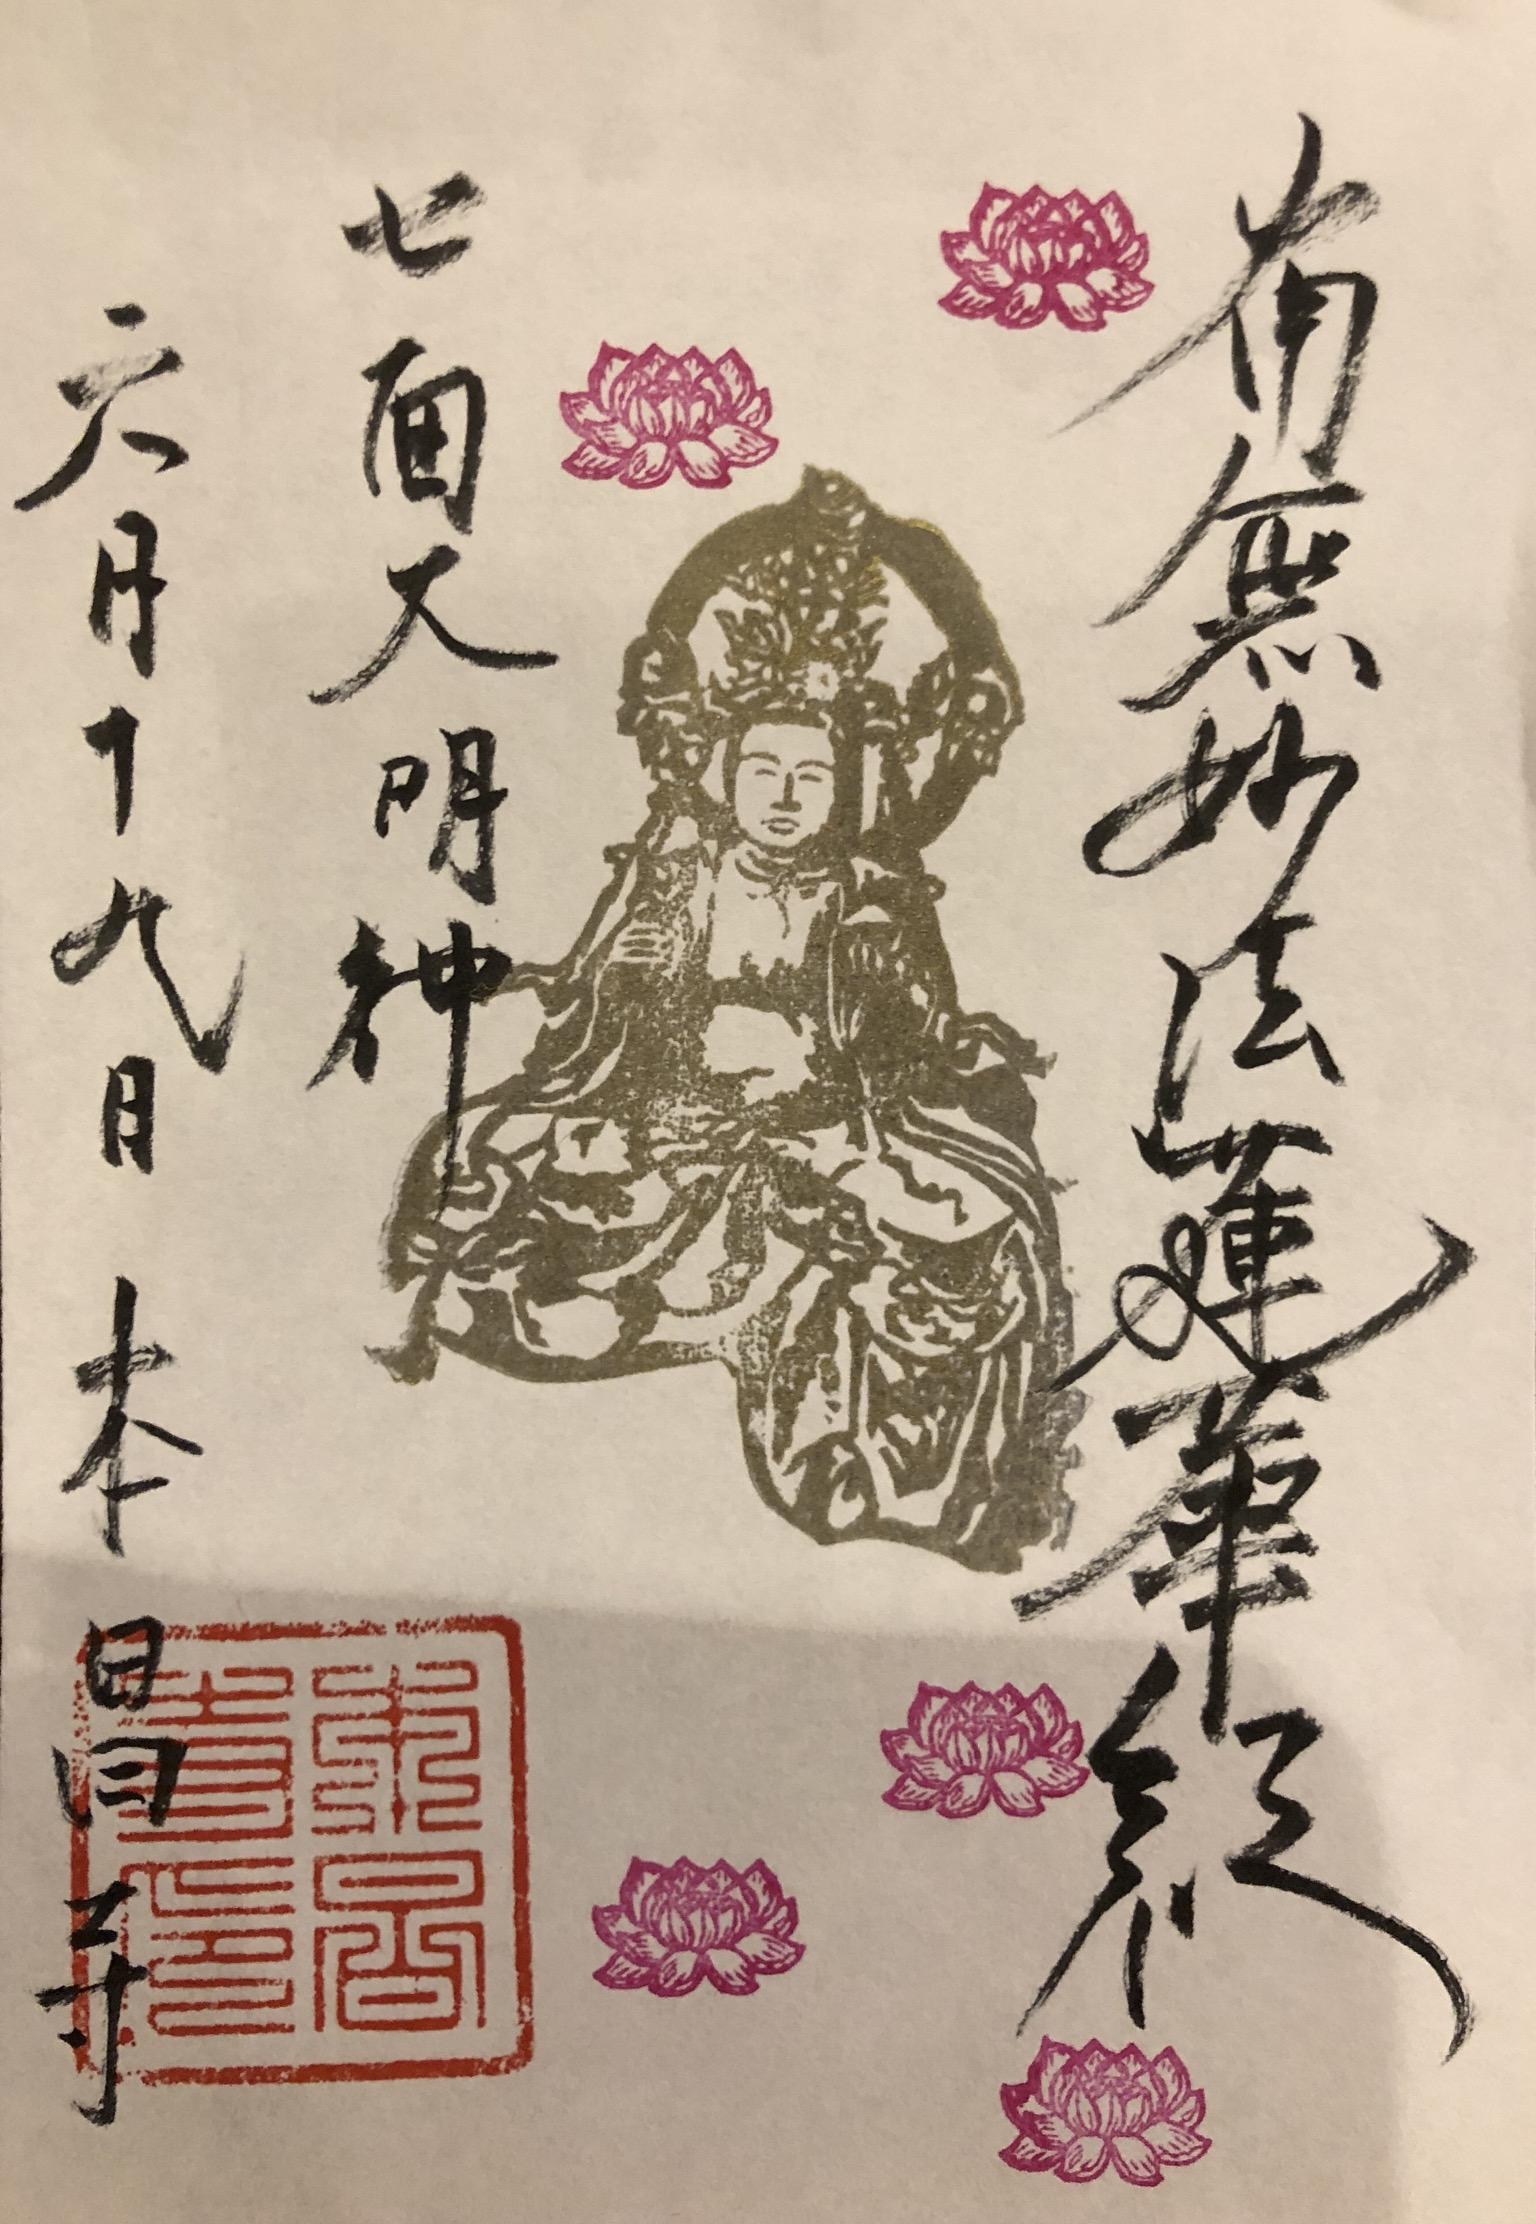 南無妙法蓮華経
七面大明神
六月十九日 本 寺